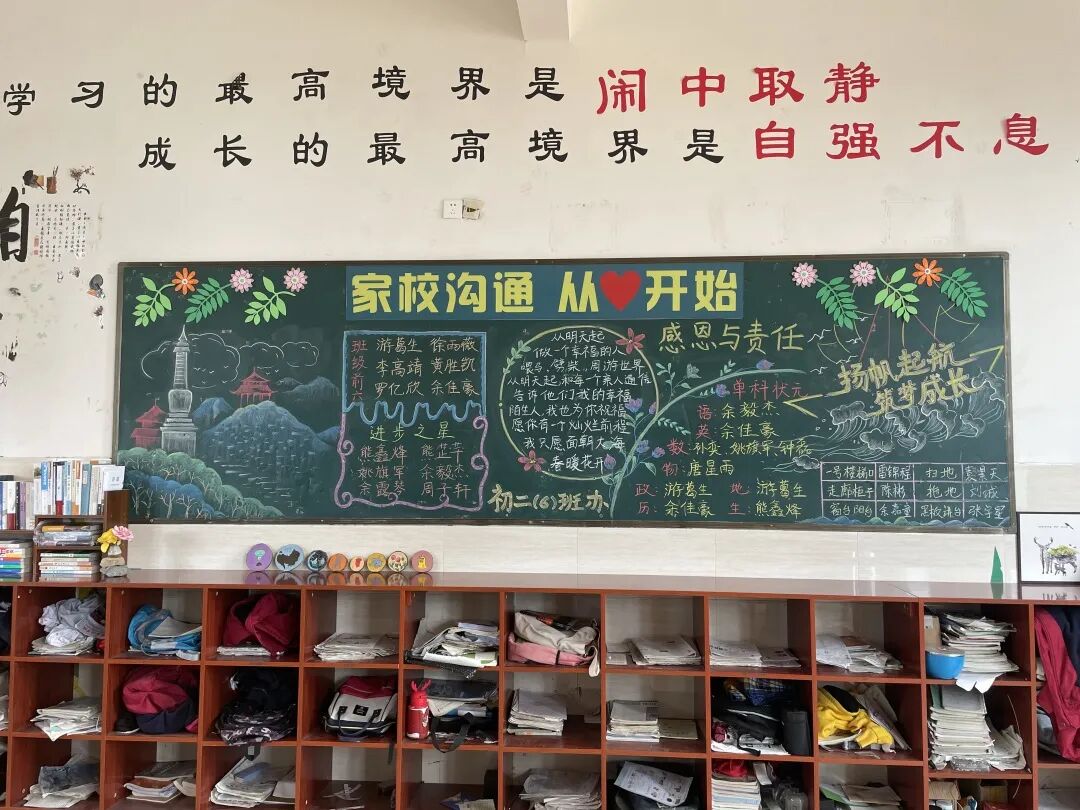 学习的最高境界是闹中取静
成长的最高境界是自强不息
自
家校沟通 从 开始
班级前六
游葛生 徐雨薇
李高靖 黄胜凯
罗亿欣 余佳豪
进步之星
熊鑫烽 熊芷芊
姚雄军 余毅杰
余露琴 周子轩
从明天起
做一个幸福的人
喂马、劈柴、周游世界
从明天起,和每一个亲人通信
告诉他们我的幸福
陌生人,我也为你祝福
愿你有一个灿烂前程
我只愿面朝大海
春暖花开
初二(6)班办
感恩与责任
单科状元
语:余毅杰
英:余佳豪
数:孙奕、姚雄军、钟磊
物:唐星雨
政:游葛生 地:游葛生
历:余佳豪 生:熊鑫烽
扬帆起航
筑梦成长
一号楼梯口 扫地
走廊柜子 陈彬 拖地 刘诚
窗台阳台 余嘉童 黑板讲台